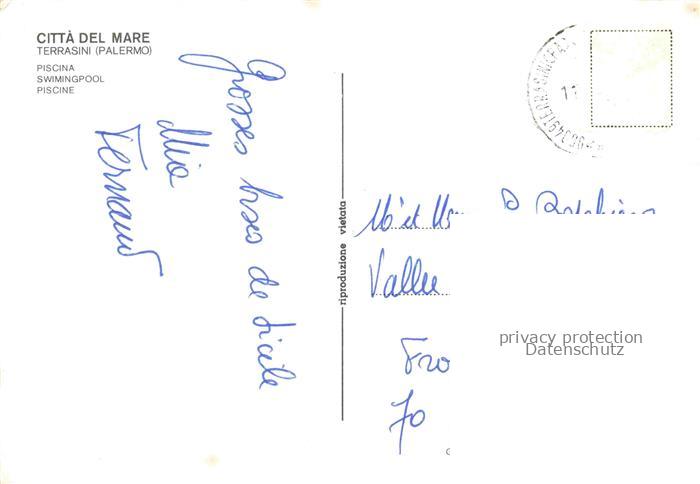 CITTÀ DEL MARE
TERRASINI (PALERMO)
PISCINA
SWIMINGPOOL
PISCINE
Grosses bises de Sicile
Fernand
riproduzione vietata
11
Mr et
Vallee
70
privacy protection
Datenschutz